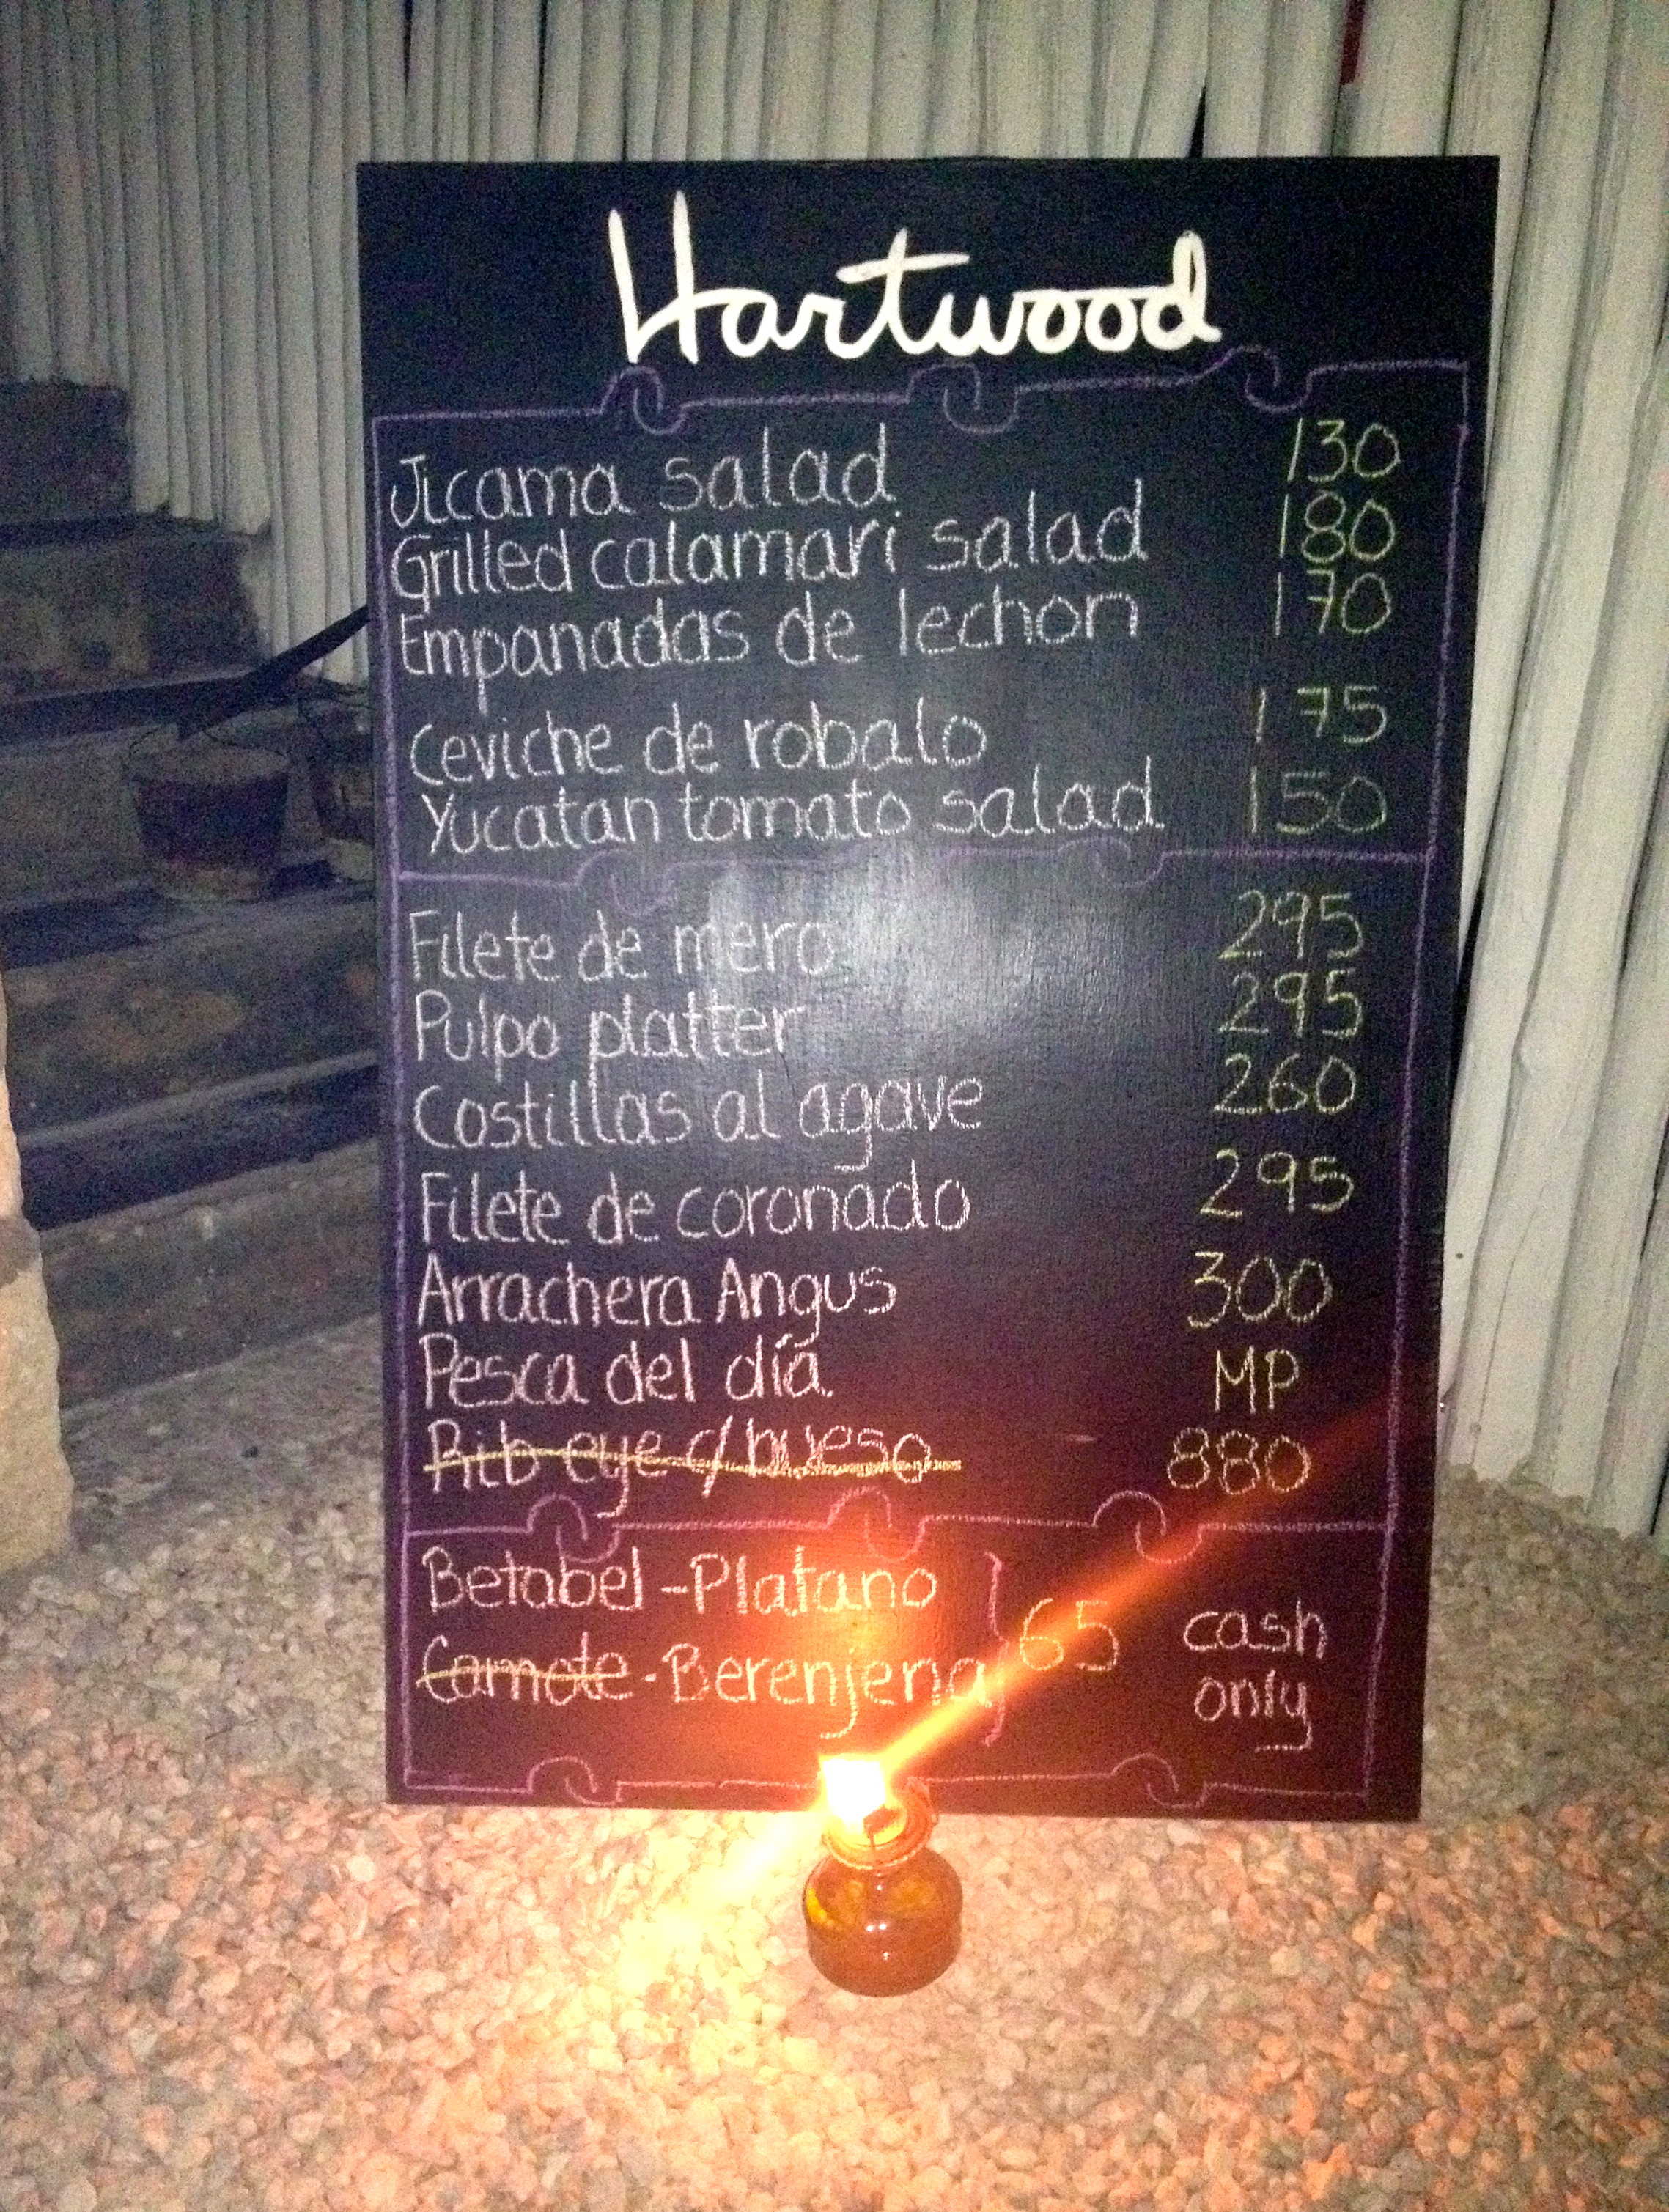 Hartwood
Jicama salad 130
Grilled calamari salad 180
Empanadas de lechon 170
Ceviche de robalo 175
Yucatan tomato salad 150
Filete de mero 295
Pulpo platter 295
Costillas al agave 260
Filete de coronado 295
Arrachera Angus 300
Pesca del día. MP
Rib eye c/hueso 880
Betabel - Platano
65 cash
Camote - Berenjena
only